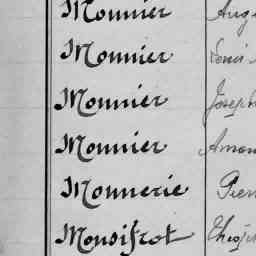 Monnier Augu
Monnier Louis
Monnier Joseph
Monnier Aman
Monnerie Pierr
Monsifrot Théop